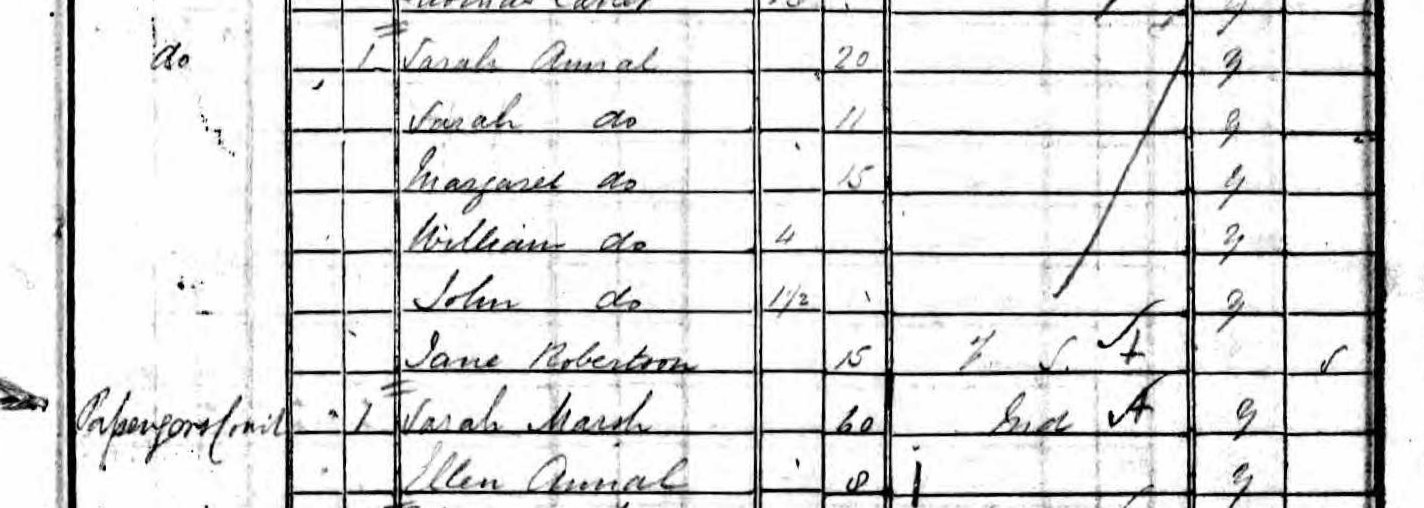 do 1 Sarah Annal 20 y
Sarah do 11 y
Margaret do 15 y
William do 4 y
John do 1 1/2 y
Jane Robertson 15 F. S. S
1 Sarah Marsh 60 Ind y
Ellen Annal 8 y